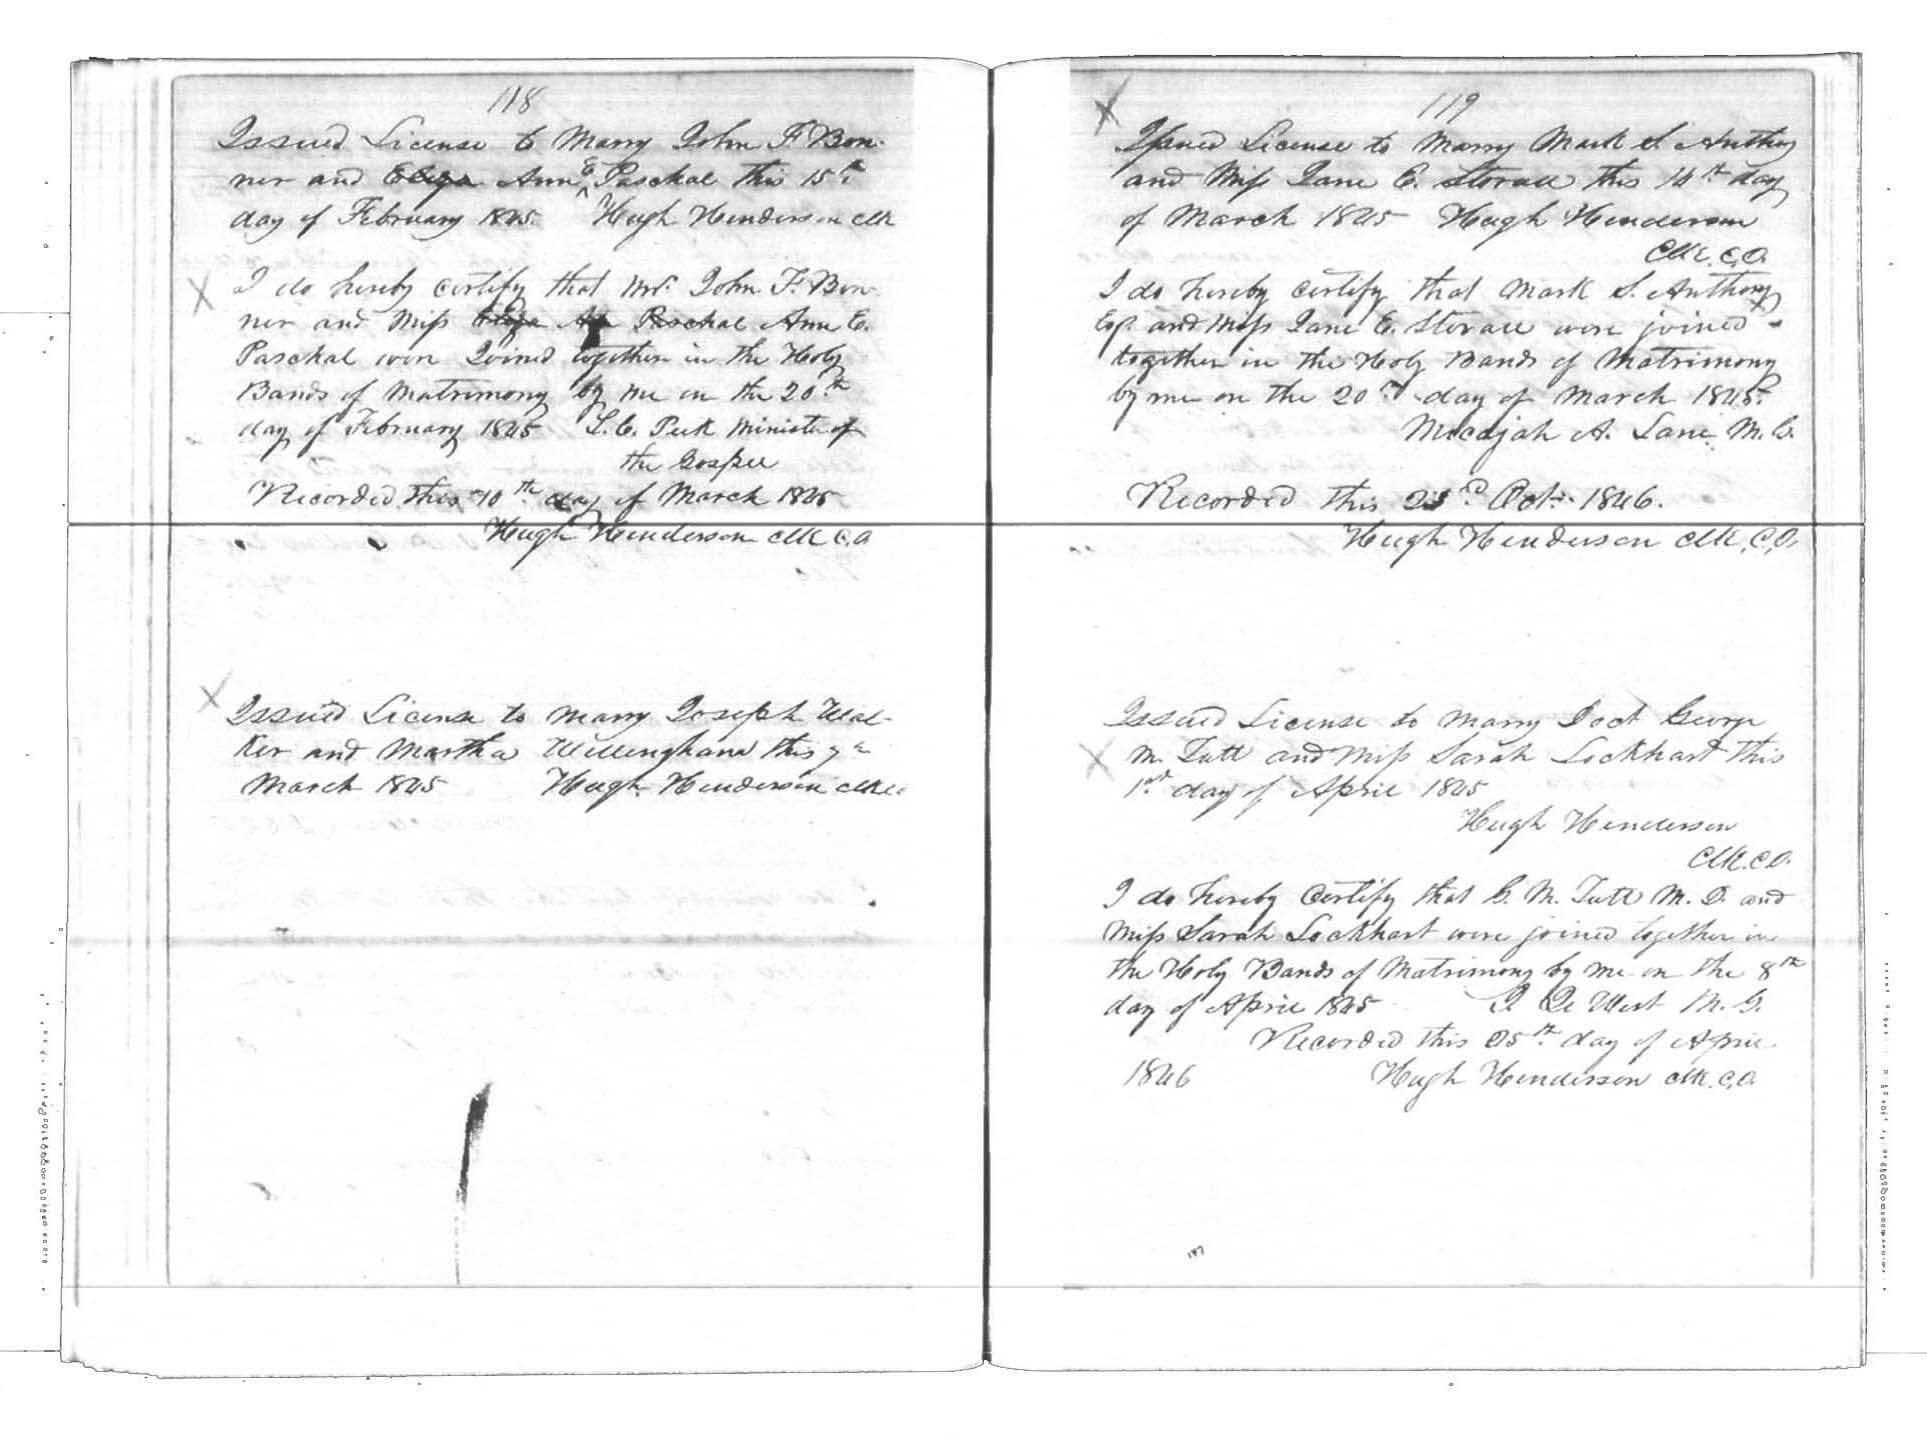 118
Issued License to Marry John F. Bon-
ner and Eliza Ann E Paschal this 15th
day of February 1845 Hugh Henderson Clk
I do hereby certify that Mr. John F. Bon-
ner and Miss Eliza Ann Paschal Ann E.
Paschal were Joined together in the Holy
Bands of Matrimony by me on the 20th
day of February 1845 L. C. Peek Minister of
the Gospel
Recorded this 10th day of March 1845
Hugh Henderson Clk C.O
Issued License to Marry Joseph Wal-
ker and Martha Willingham this 7th
March 1845 Hugh Henderson Clk
119
Issued License to Marry Mark S. Anthony
and Miss Jane E. Stovall this 14th day
of March 1845 Hugh Henderson
Clk. C.O.
I do hereby Certify that Mark S. Anthony
Esq. and Miss Jane E. Stovall were joined
together in the Holy Bands of Matrimony
by me on the 20th day of March 1845.
Micajah A. Lane. M. G.
Recorded this 23rd Oct. 1846.
Hugh Henderson Clk. C.O.
Issued License to Marry Doct George
M. Tutt and Miss Sarah Lockhart this
1st day of April 1845
Hugh Henderson
Clk. C.O.
I do hereby Certify that G. M. Tutt M. D. and
Miss Sarah Lockhart were joined together in
the Holy Bands of Matrimony by me on the 8th
day of April 1845 West M. G.
Recorded this 25th day of April
1846 Hugh Henderson Clk. C.O.